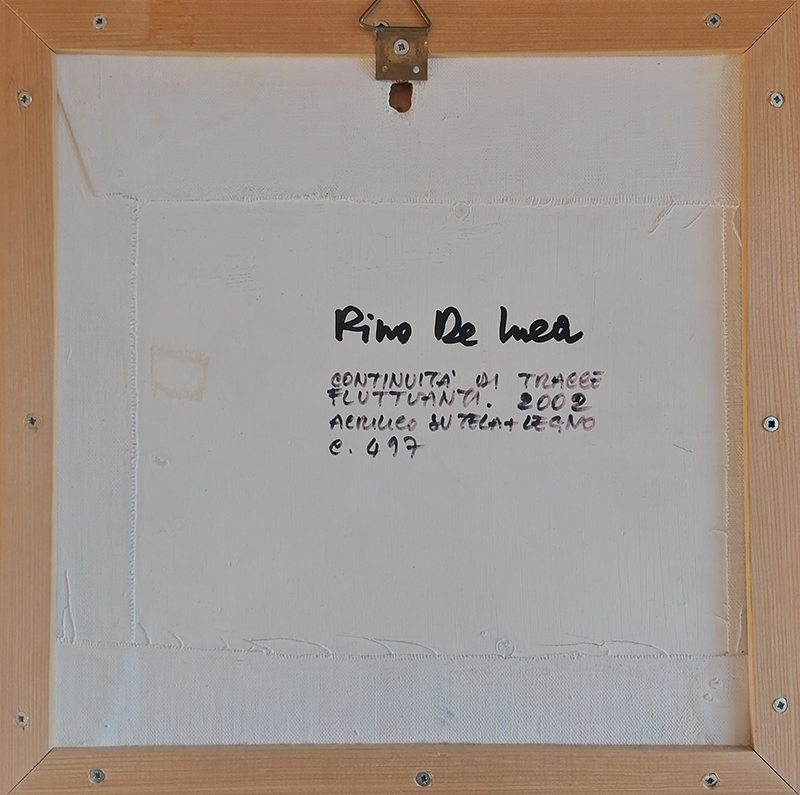 Rino De Luca
CONTINUITA' DI TRACCE
FLUTTUANTI. 2002
ACRILICO SU TELA + LEGNO
C. 497